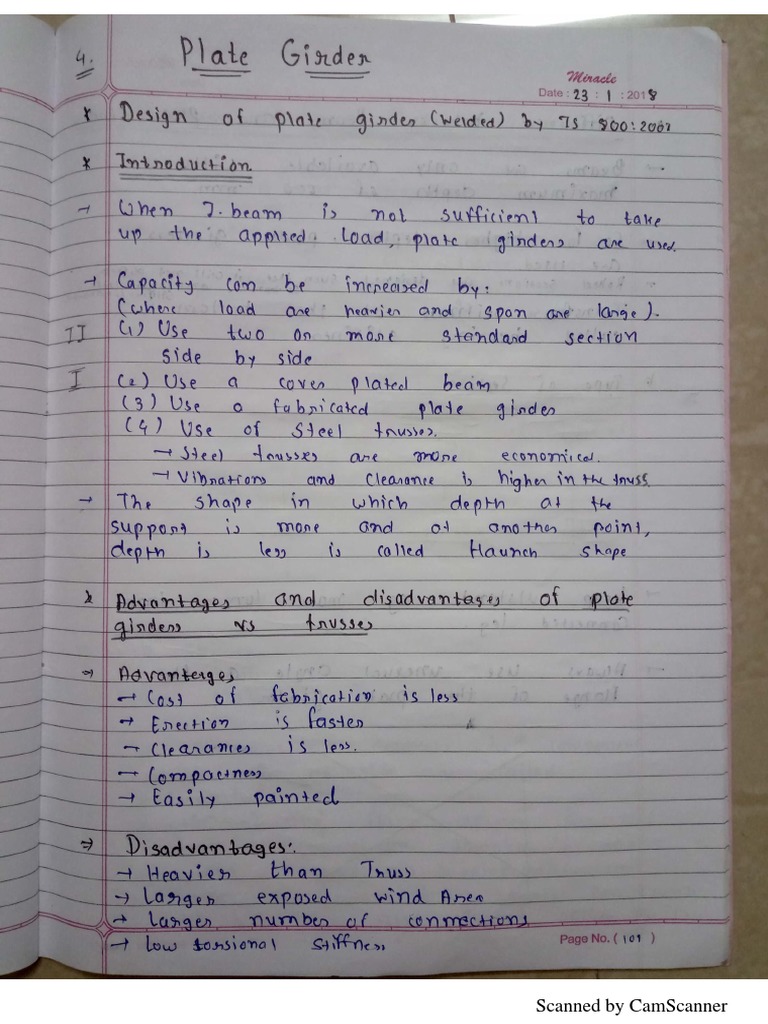 4. Plate Girder
Miracle
Date : 23 : 1 : 2018
* Design of plate girder (welded) by IS 800:2007
* Introduction
→ When I. beam is not sufficient to take
up the applied. Load, plate girders are used.
→ Capacity can be increased by:
(where load are heavier and span are large).
II (1) Use two or more standard section
side by side
I (2) Use a cover plated beam
(3) Use a fabricated plate girder
(4) Use of steel trusses.
→ Steel trusses are more economical.
→ Vibrations and clearance is higher in the truss.
→ The shape in which depth at the
support is more and at another point,
depth is less is called Haunch shape
* Advantages and disadvantages of plate
girders vs trusses
⇒ Advantages
→ Cost of fabrication is less
→ Erection is faster
→ Clearances is less.
→ Compactness
→ Easily painted
⇒ Disadvantages:.
→ Heavier than Truss
→ Larger exposed wind Area
→ Larger number of connections
→ Low torsional stiffness
Page No. ( 101 )
Scanned by CamScanner